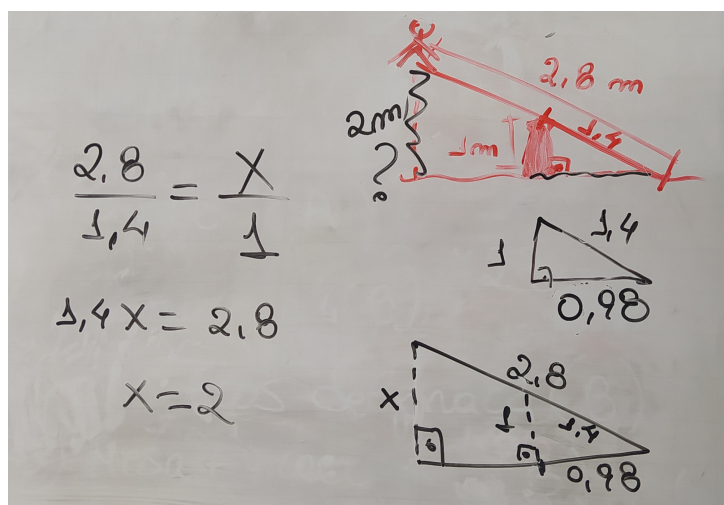 2,8 / 1,4 = X / 1
1,4 X = 2,8
X = 2
2,8 m
2m
?
1m
1,4
1
1,4
0,98
X
2,8
1
1,4
0,98